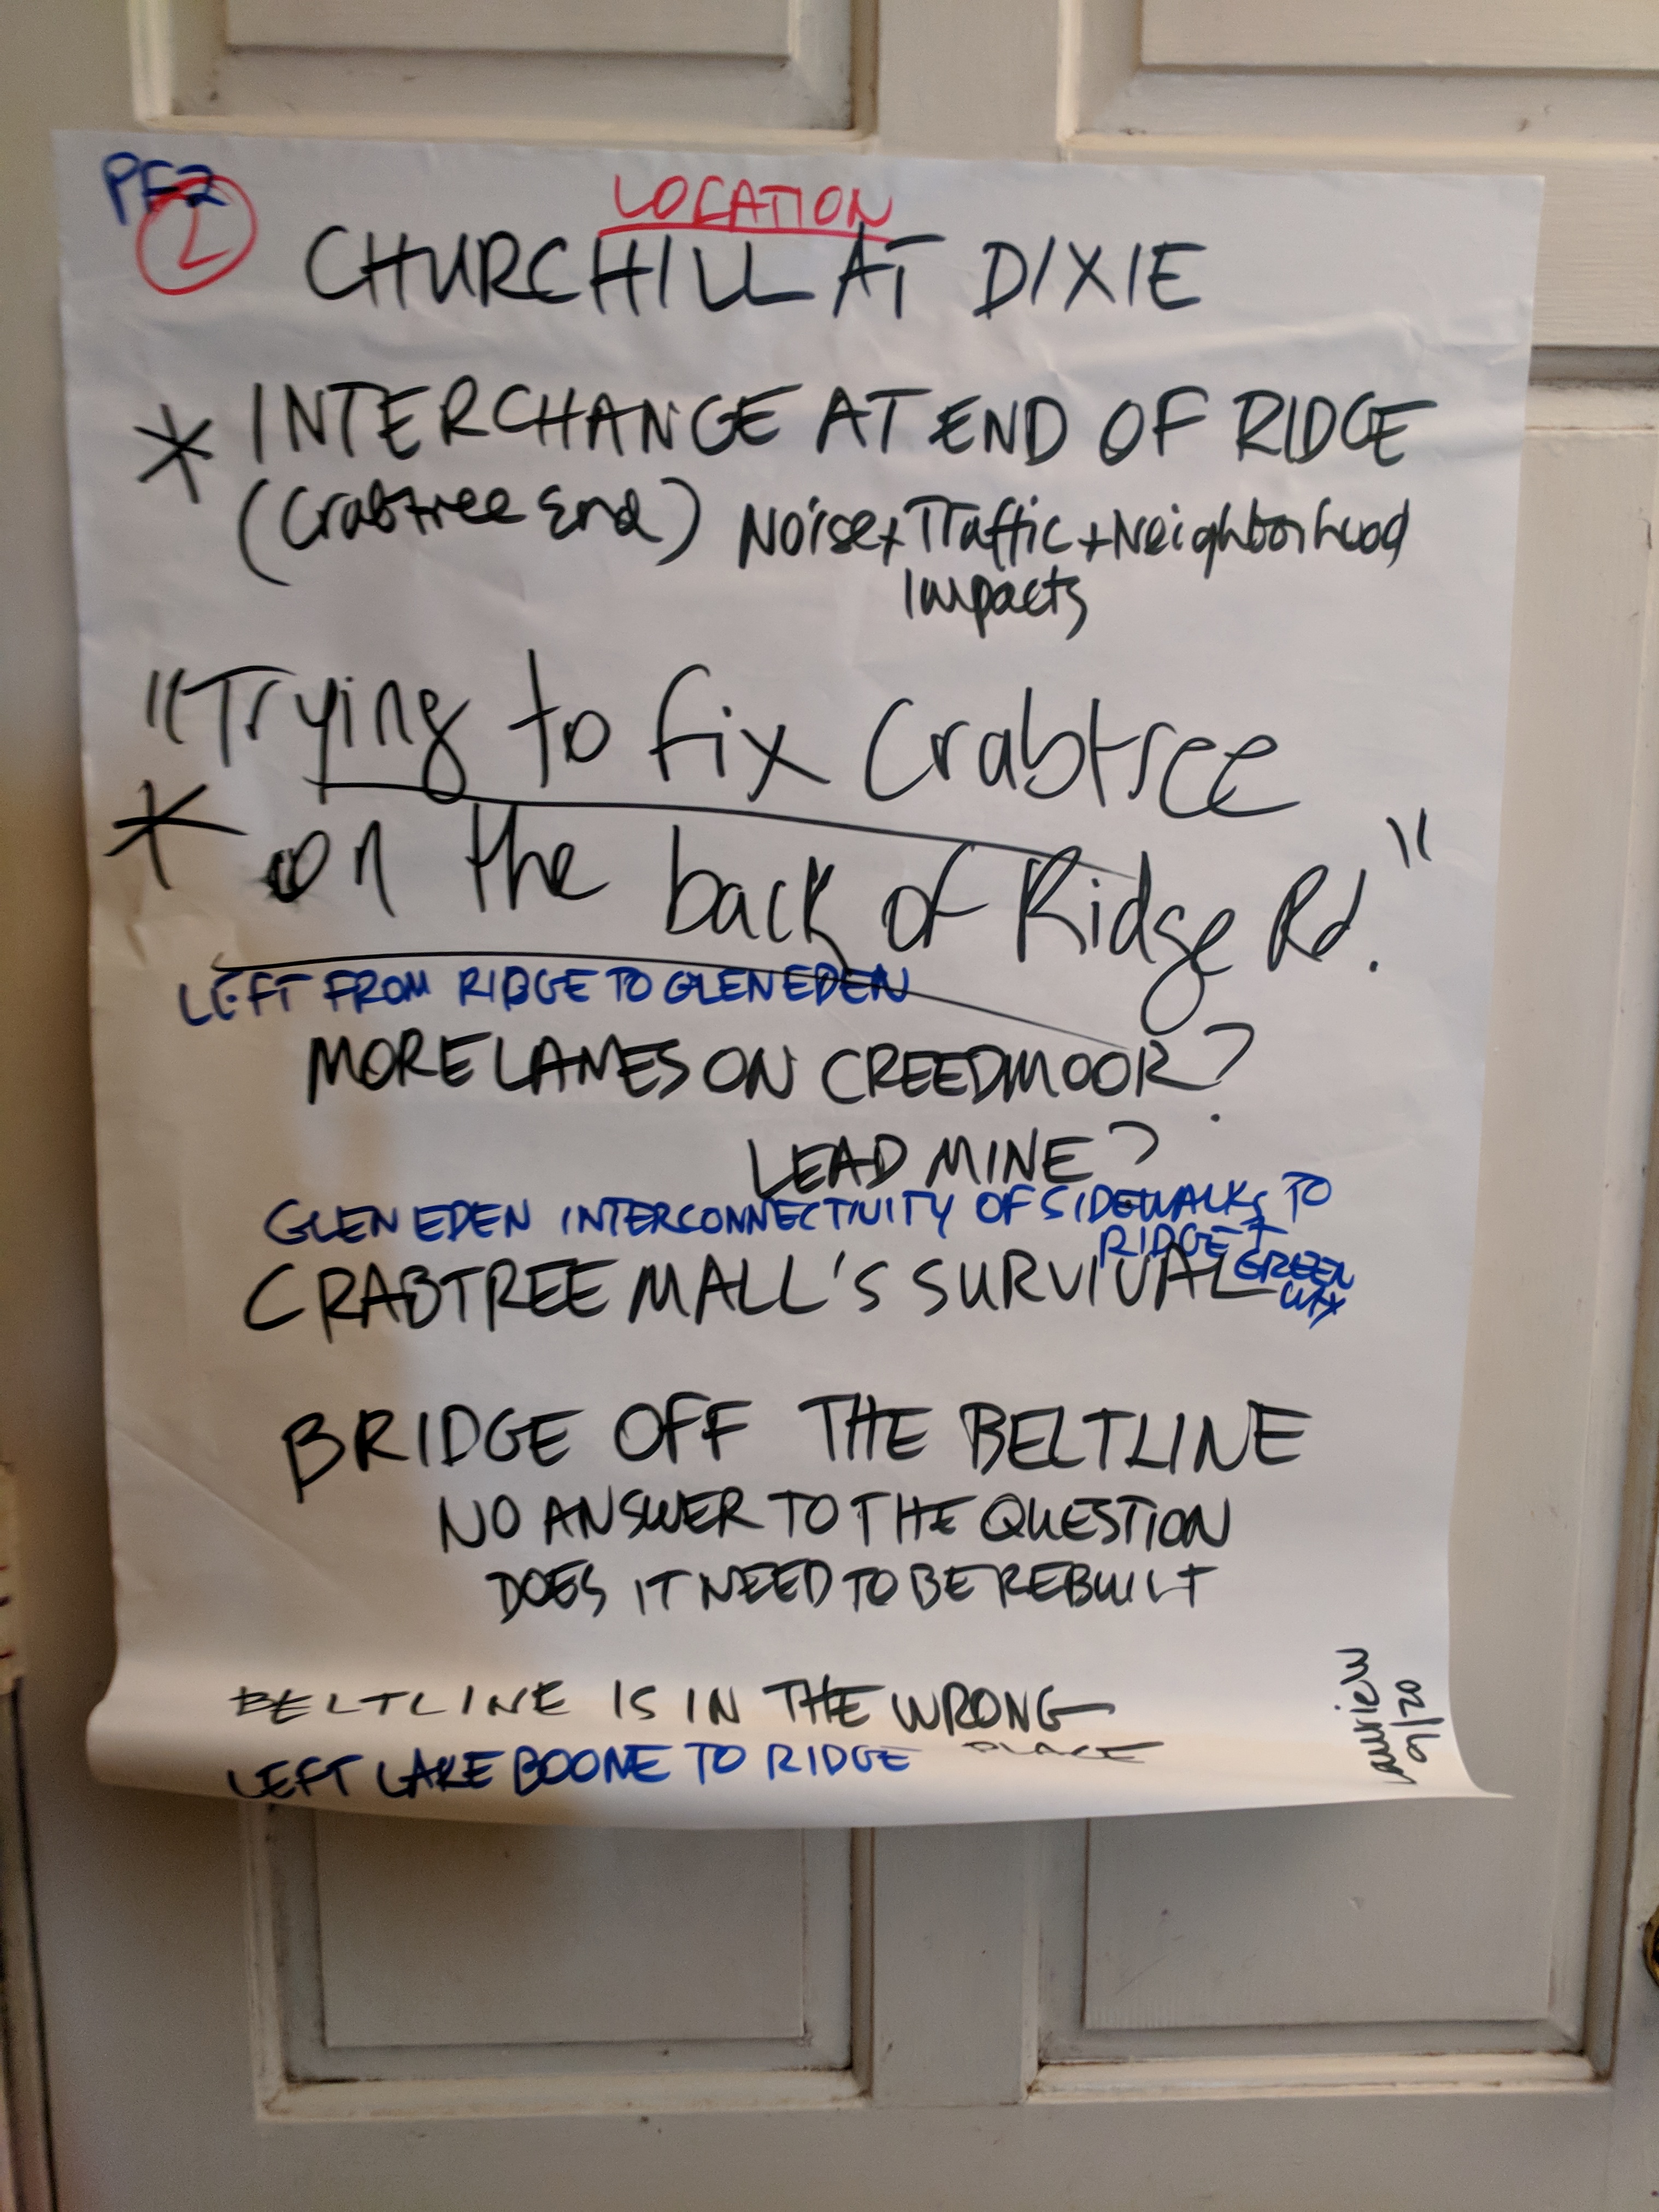 PF2
2
LOCATION
CHURCHILL AT DIXIE
* INTERCHANGE AT END OF RIDGE
(Crabtree End) Noise + Traffic + Neighborhood
Impacts
"Trying to fix Crabtree
* on the back of Ridge Rd."
LEFT FROM RIDGE TO GLEN EDEN
MORE LANES ON CREEDMOOR?
LEAD MINE?
GLEN EDEN INTERCONNECTIVITY OF SIDEWALKS TO
RIDGE +
GREEN
WAY
CRABTREE MALL'S SURVIVAL
BRIDGE OFF THE BELTLINE
NO ANSWER TO THE QUESTION
DOES IT NEED TO BE REBUILT
BELTLINE IS IN THE WRONG
PLACE
LEFT LAKE BOONE TO RIDGE
9/20